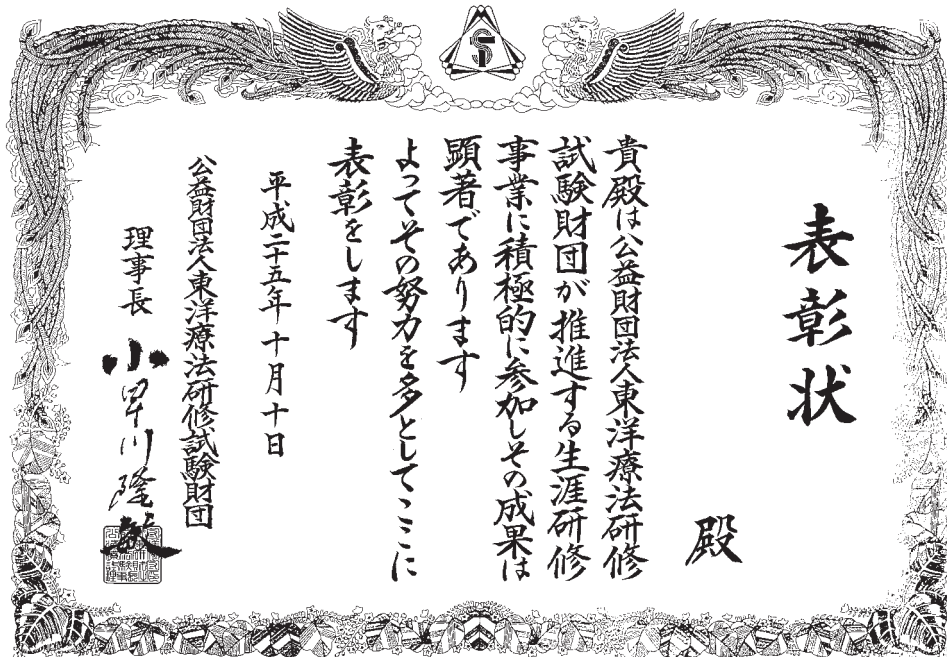 表彰状
殿
貴殿は公益財団法人東洋療法研修
試験財団が推進する生涯研修
事業に積極的に参加しその成果は
顕著であります
よってその努力を多としてここに
表彰をします
平成二十五年十月十日
公益財団法人東洋療法研修試験財団
理事長